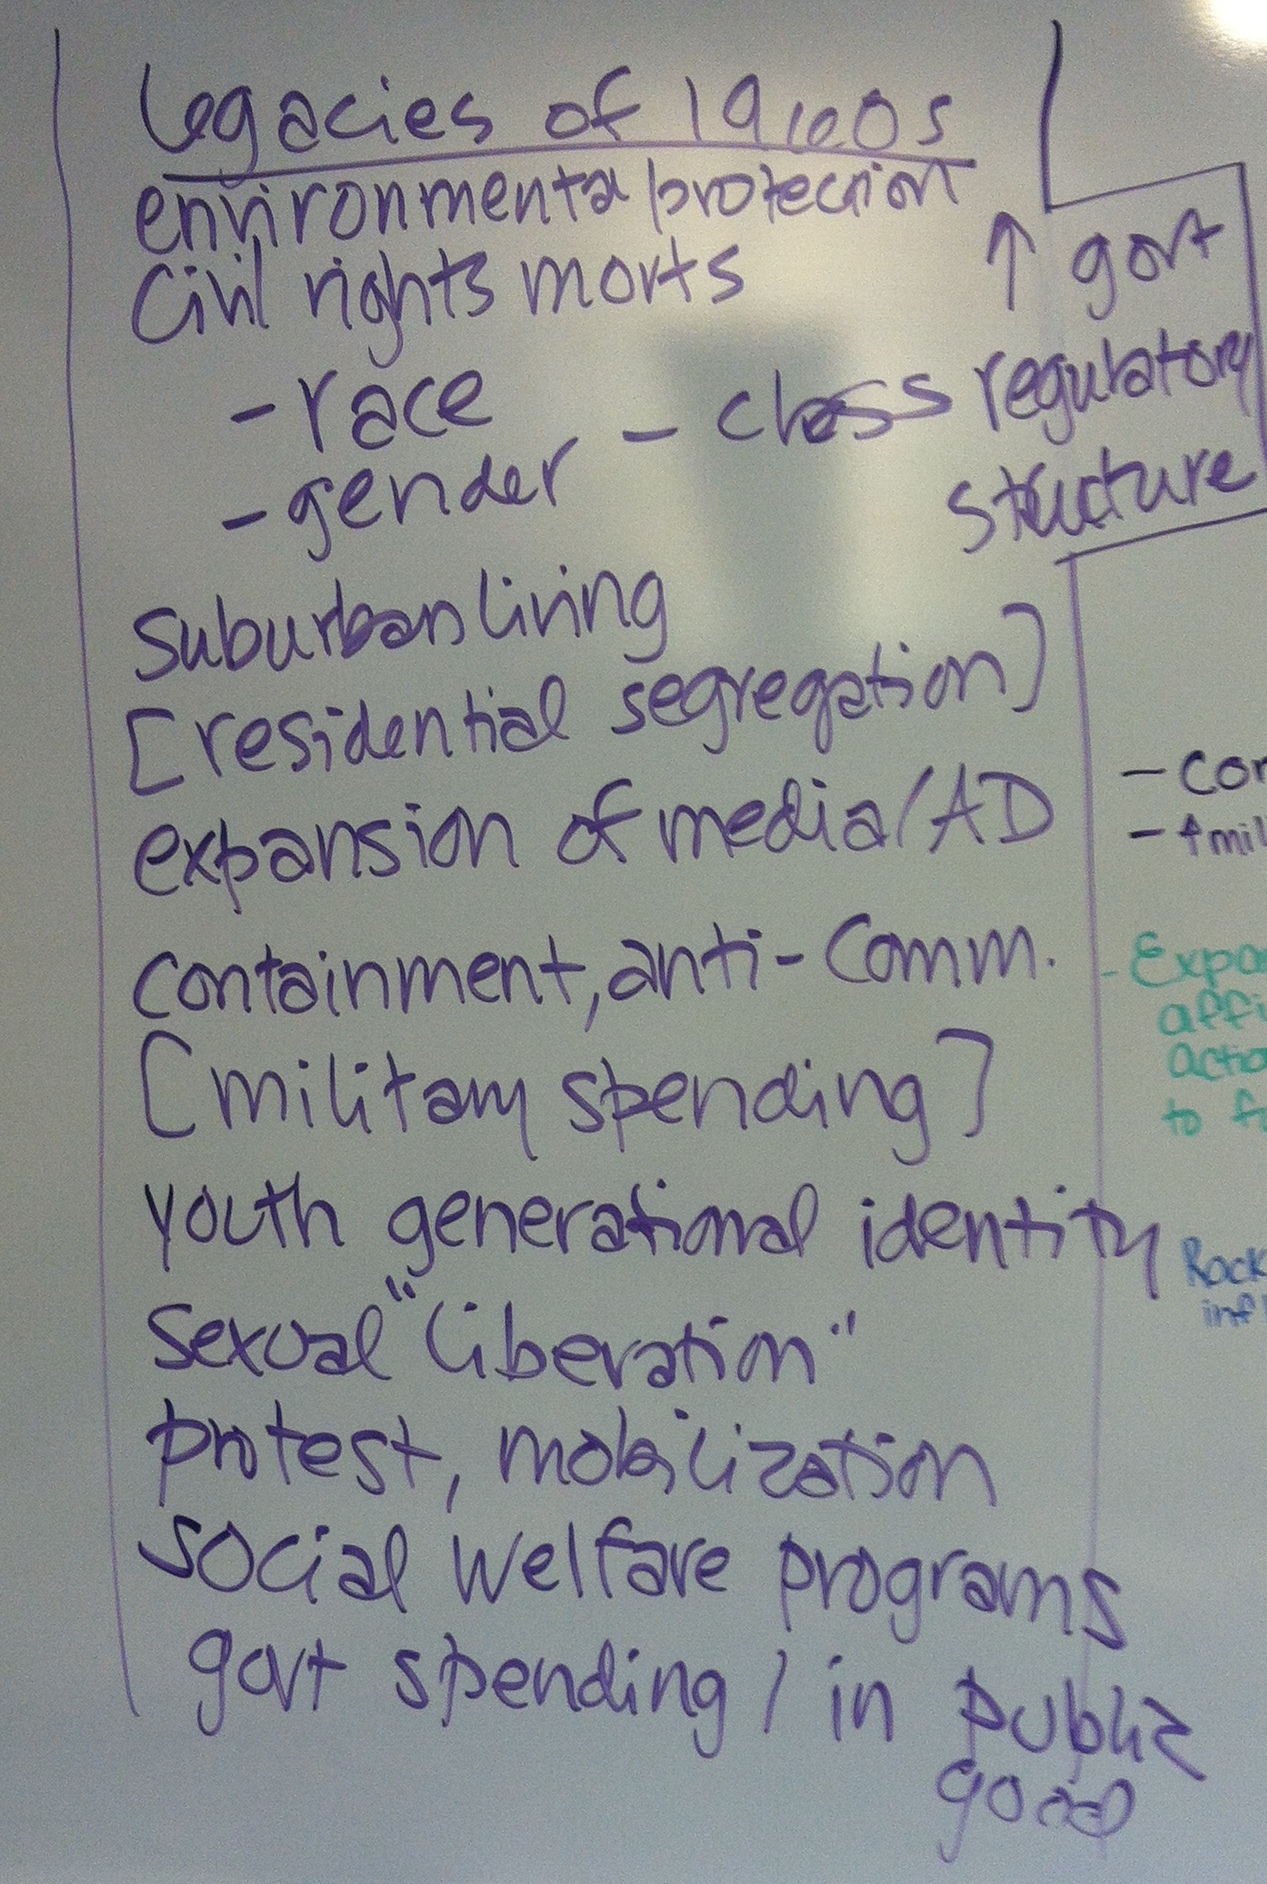 legacies of 1960s
environmental protection
Civil rights movts
- race
- gender - class
↑ govt
regulatory
structure
suburban living
[residential segregation]
expansion of media/AD
containment, anti-Comm.
[military spending]
youth generational identity
sexual "liberation"
protest, mobilization
social welfare programs
govt spending / in public
good
- con
- ↑ mil
- Expan
affi
actio
to f
Rock
infl